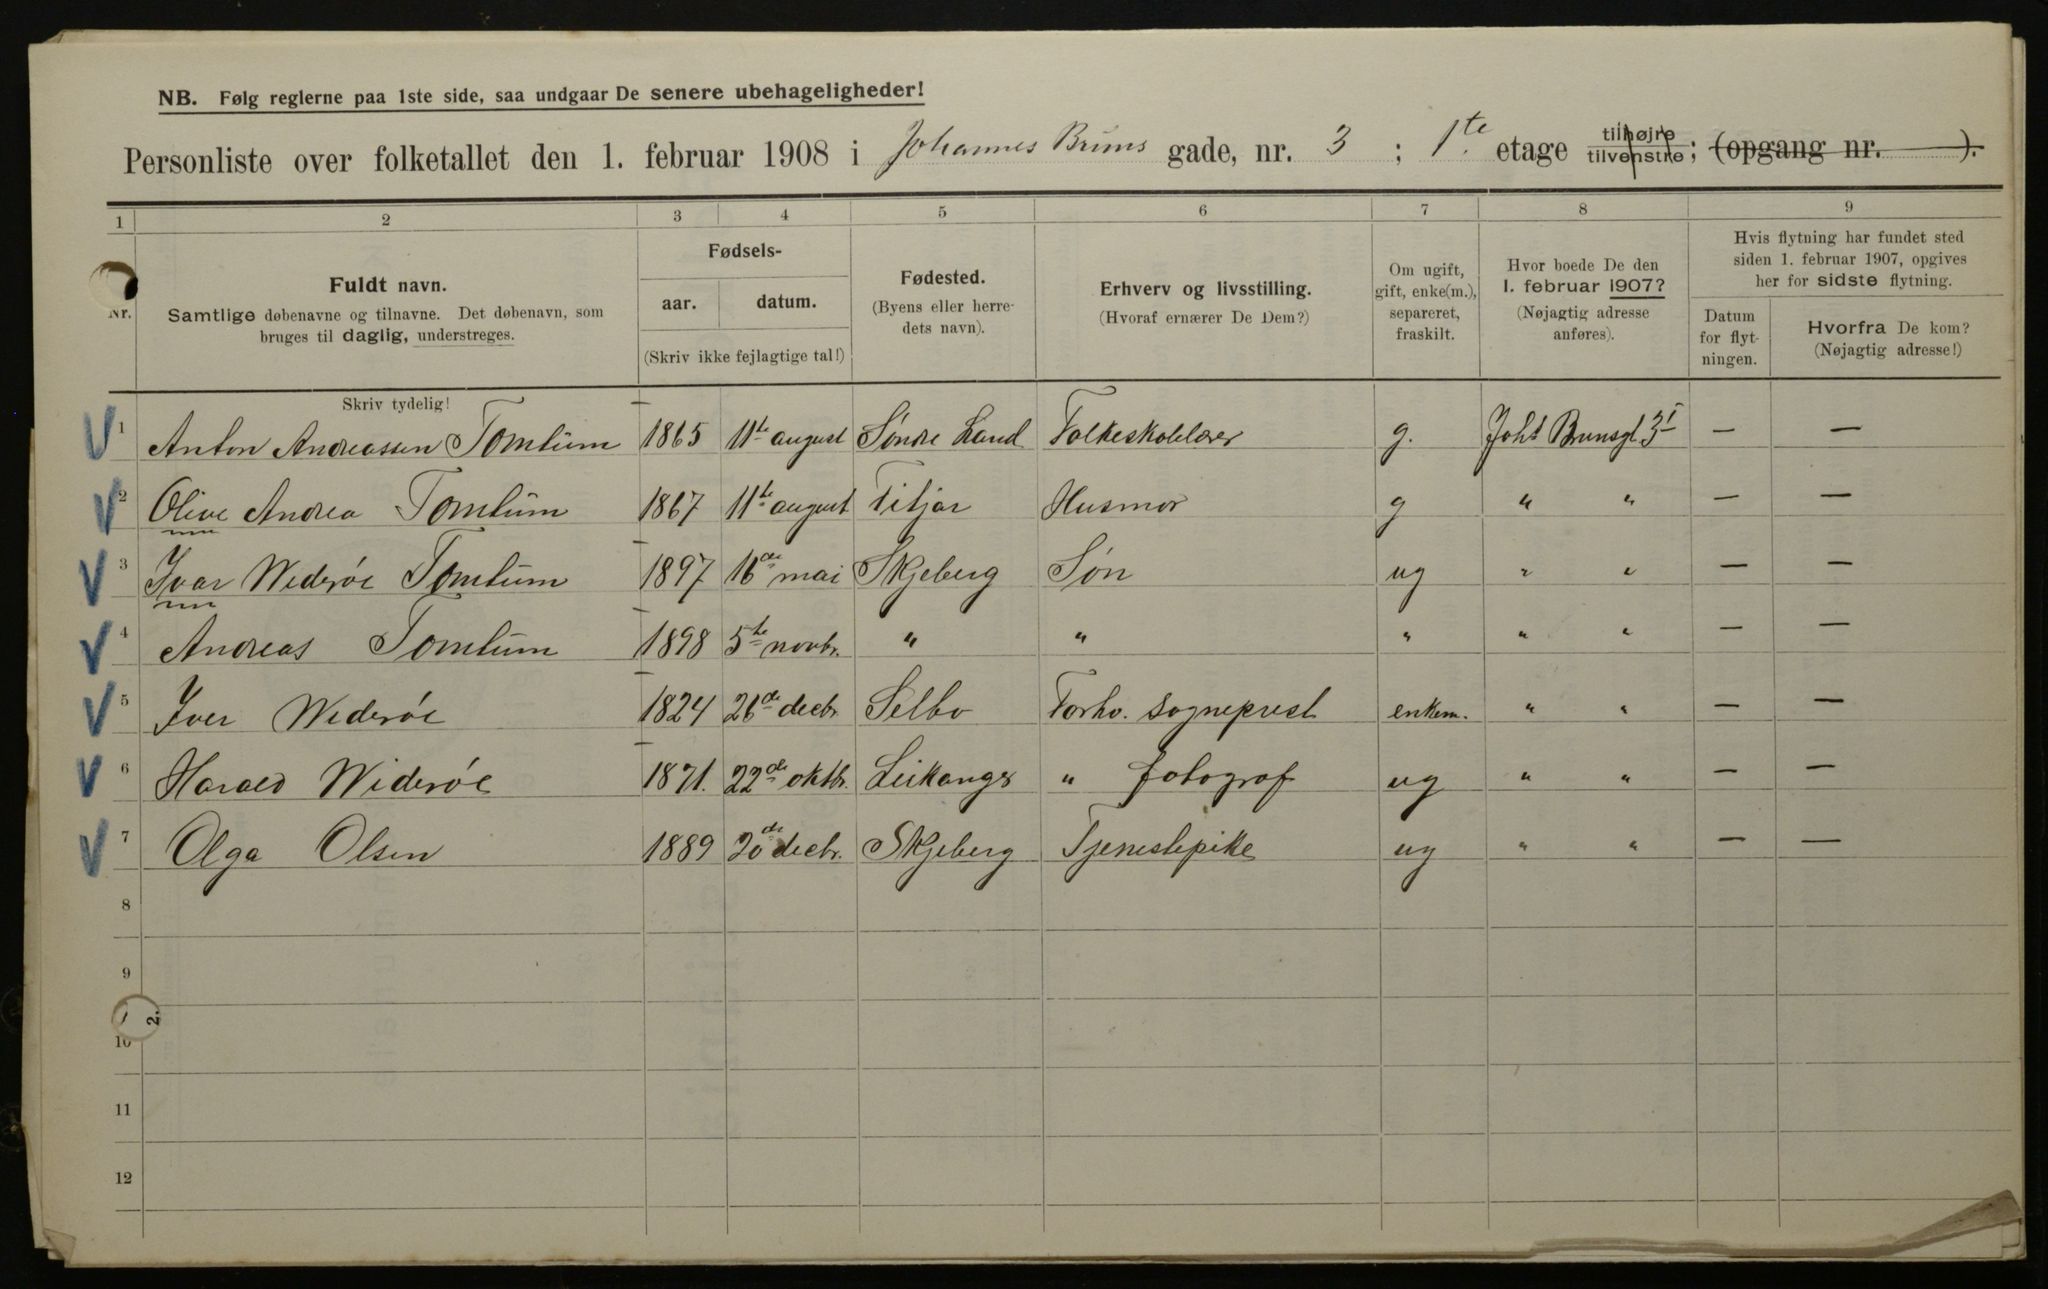 NB. Følg reglerne paa 1ste side, saa undgaar De senere ubehageligheder!
Personliste over folketallet den 1. februar 1908 i Johannes Bruns gade, nr. 3 ; 1te etage tilhøjre tilvenstre ; (opgang nr. ).
1 2 3 4 5 6 7 8 9
Nr.
Fuldt navn.
Samtlige døbenavne og tilnavne. Det døbenavn, som
bruges til daglig, understreges.
Skriv tydelig!
Fødsels-
aar. datum.
(Skriv ikke fejlagtige tal!)
Fødested.
(Byens eller herre-
dets navn).
Erhverv og livsstilling.
(Hvoraf ernærer De Dem?)
Om ugift,
gift, enke(m.),
separeret,
fraskilt.
Hvor boede De den
1. februar 1907?
(Nøjagtig adresse
anføres).
Hvis flytning har fundet sted
siden 1. februar 1907, opgives
her for sidste flytning.
Datum
for flyt-
ningen.
Hvorfra De kom?
(Nøjagtig adresse!)
1 Anton Andreassen Tomtum 1865 11te august Søndre Land Folkeskolelærer g. Johs Brunsgt. 3 I — —
2 Olive Andrea Tomtum 1867 11te august Fitjar Husmor g " " — —
3 Ivar Widerøe Tomtum 1897 16de mai Skjeberg Søn ug " " — —
4 Andreas Tomtum 1898 5te novbr. " " " " " — —
5 Iver Widerøe 1824 26de decbr. Selbo Forhv. sogneprest enkem. " " — —
6 Harald Widerøe 1871. 22de oktbr. Leikanger " fotograf ug " " — —
7 Olga Olsen 1889 20de decbr. Skjeberg Tjenestepike ug " " — —
8
9
10
11
12
2.